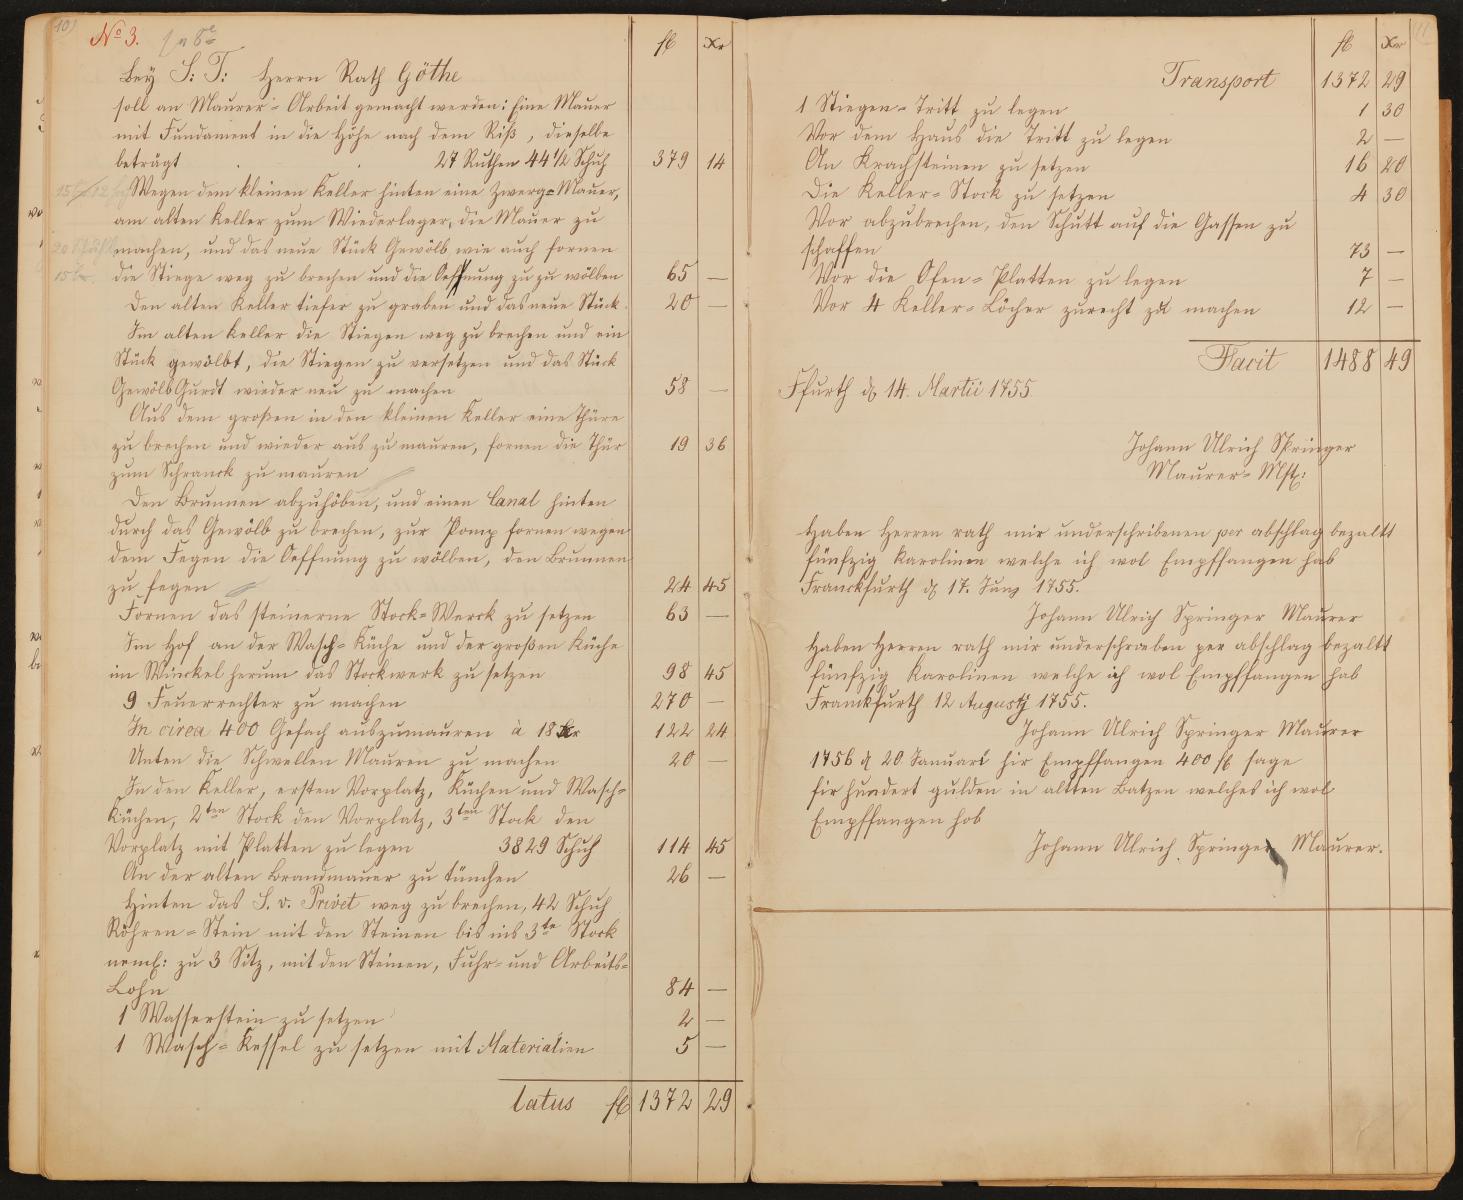 10)
No 3.
fl Xr
Bey S: T: Herrn Rath Göthe
soll an Maurer-Arbeit gemacht werden: Eine Mauer
mit Fundament in die Höhe nach dem Riß, dieselbe
beträgt 27 Ruthen 44 1/2 Schuh 379 14
Wegen dem kleinen Keller hinten eine Zwerg-Mauer,
am alten Keller zum Wiederlager, die Mauer zu
machen, und das neue Stück Gewölb wie auch fornen
die Stiege weg zu brechen und die Oeffnung zu zu wölben 65 —
Den alten Keller tiefer zu graben und das neue Stück 20 —
Im alten Keller die Stiegen weg zu brechen und ein
Stück gewölbt, die Stiegen zu versetzen und das Stück
Gewölb Gurdt wieder neu zu machen 58 —
Aus dem großen in den kleinen Keller eine Thüre
zu brechen und wieder aus zu mauren, fornen die Thür 19 36
zum Schranck zu mauren
Den Brunnen abzuhöben, und einen Canal hinten
durch das Gewölb zu brechen, zur Pomp fornen wegen
dem Fegen die Oeffnung zu wölben, den Brunnen
zu fegen 24 45
Fornen das steinerne Stock-Werck zu setzen 63 —
Im Hof an der Wasch-Küche und der großen Küche
im Winckel herum das Stockwerk zu setzen 98 45
9 Feuerrechter zu machen 270 —
In circa 400 Gefach auszumauren à 18 Xr 122 24
Unten die Schwellen Mauren zu machen 20 —
In den Keller, ersten Vorplatz, Küchen und Wasch-
Küchen, 2ten Stock den Vorplatz, 3ten Stock den
Vorplatz mit Platten zu legen 3829 Schuh 114 45
An der alten Brandmauer zu tünchen 26 —
Hinten das S. v. Privet weg zu brechen, 42 Schuh
Röhren-Stein mit den Steinen bis ins 3te Stock
neml: zu 3 Sitz, mit den Steinen, Fuhr- und Arbeits-
Lohn 84 —
1 Wasserstein zu setzen 2 —
1 Wasch-Kessel zu setzen mit Materialien 5 —
Latus fl 1372 29
11
fl Xr
Transport 1372 29
1 Stiegen-Tritt zu legen 1 30
Vor dem Haus die Tritt zu legen 2 —
An Krachsteinen zu setzen 16 20
Die Keller-Stock zu setzen 4 30
Vor abzubrechen, den Schutt auf die Gassen zu
schaffen 73 —
Vor die Ofen-Platten zu legen 7 —
Vor 4 Keller-Löcher zurecht zu machen 12 —
Facit 1488 49
Ffurth d. 14. Martii 1755
Johann Ulrich Springer
Maurer-Mst:
Haben Herren rath mir underschribenen per abschlag bezaltt
fünfzig Karolinen welche ich wol Empffangen hab
Franckfurth d. 17. Juny 1755.
Johann Ulrich Springer Maurer
Haben Herren rath mir underschraben per abschlag bezaltt
fünfzig Karolinen welche ich wol Empffangen hab
Franckfurth 12 Augusty 1755.
Johann Ulrich Springer Maurer
1756 d 20 Januari hir Empffangen 400 fl sage
fir hundert gulden in altten Batzen welches ich wol
Empffangen hob
Johann Ulrich Springer Maurer.